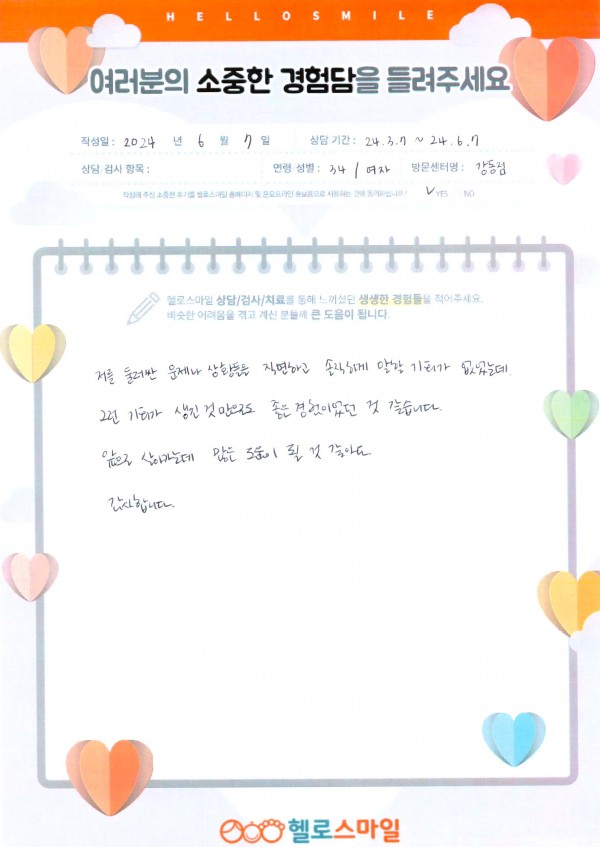 HELLOSMILE
여러분의 소중한 경험담을 들려주세요
작성일 : 2024 년 6 월 7 일 상담 기간 : 24.3.7 ~ 24.6.7
상담·검사 항목 : 연령 성별 : 34 / 여자 방문센터명 : 강동점
작성해 주신 소중한 후기를 헬로스마일 홈페이지 및 온오프라인 홍보용으로 사용하는 것에 동의하십니까? ✓YES NO
헬로스마일 상담/검사/치료를 통해 느끼셨던 생생한 경험들을 적어주세요.
비슷한 어려움을 겪고 계신 분들께 큰 도움이 됩니다.
저를 둘러싼 문제나 상황들을 직면하고 솔직하게 말할 기회가 없었는데,
그런 기회가 생긴 것만으로도 좋은 경험이었던 것 같습니다.
앞으로 살아가는데 많은 도움이 될 것 같아요
감사합니다.
헬로스마일